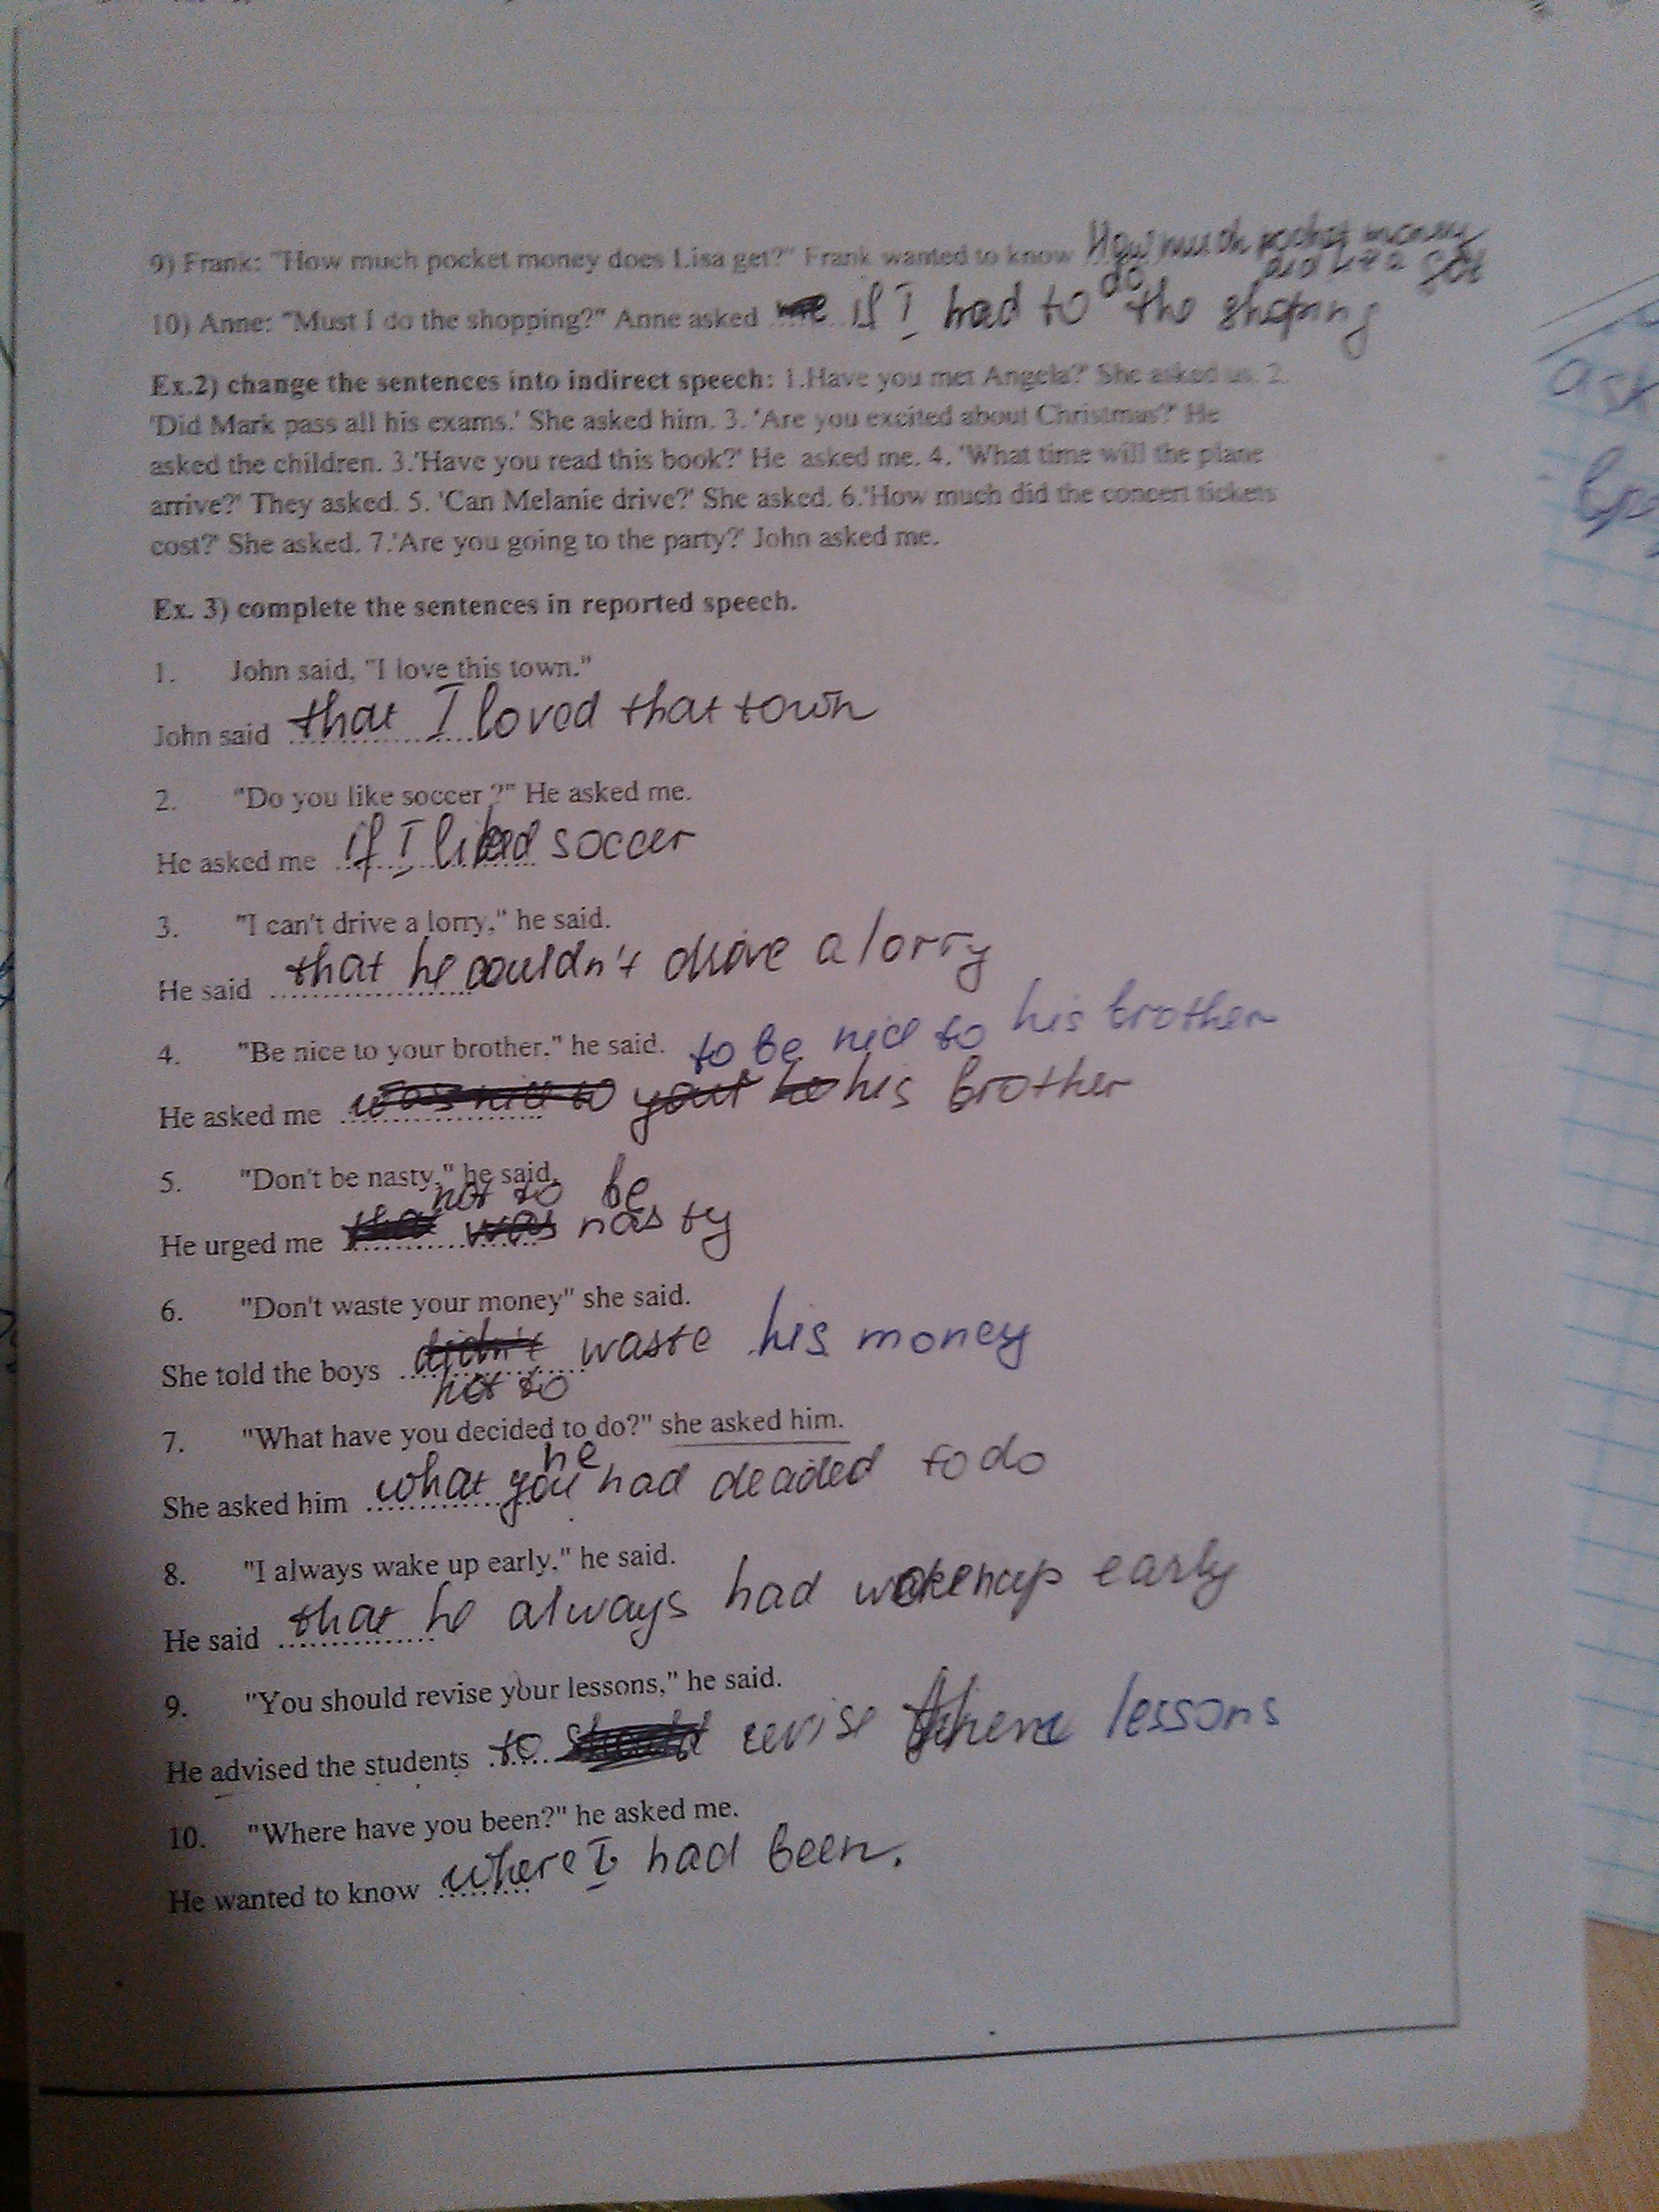 9) Frank: "How much pocket money does Lisa get?" Frank wanted to know How much pocket money
did Lisa get
do
10) Anne: "Must I do the shopping?" Anne asked if I had to the shoping
Ex.2) change the sentences into indirect speech: 1.Have you met Angela?' She asked us. 2.
'Did Mark pass all his exams.' She asked him. 3. 'Are you excited about Christmas?' He
asked the children. 3.'Have you read this book?' He asked me. 4. 'What time will the plane
arrive?' They asked. 5. 'Can Melanie drive?' She asked. 6.'How much did the concert tickets
cost?' She asked. 7.'Are you going to the party?' John asked me.
Ex. 3) complete the sentences in reported speech.
1. John said, "I love this town."
John said that I loved that town
2. "Do you like soccer ?" He asked me.
He asked me if I liked soccer
3. "I can't drive a lorry," he said.
He said that he couldn't drive a lorry
4. "Be nice to your brother." he said. to be nice to his brother
He asked me was nice to your he his brother
5. "Don't be nasty," he said.
not to be
He urged me that was nasty
6. "Don't waste your money" she said.
She told the boys didn't waste his money
not to
7. "What have you decided to do?" she asked him.
he
She asked him what you had decided to do
8. "I always wake up early," he said.
He said that he always had woken up early
9. "You should revise your lessons," he said.
He advised the students to should revise lessons
10. "Where have you been?" he asked me.
He wanted to know where I had been.
ask